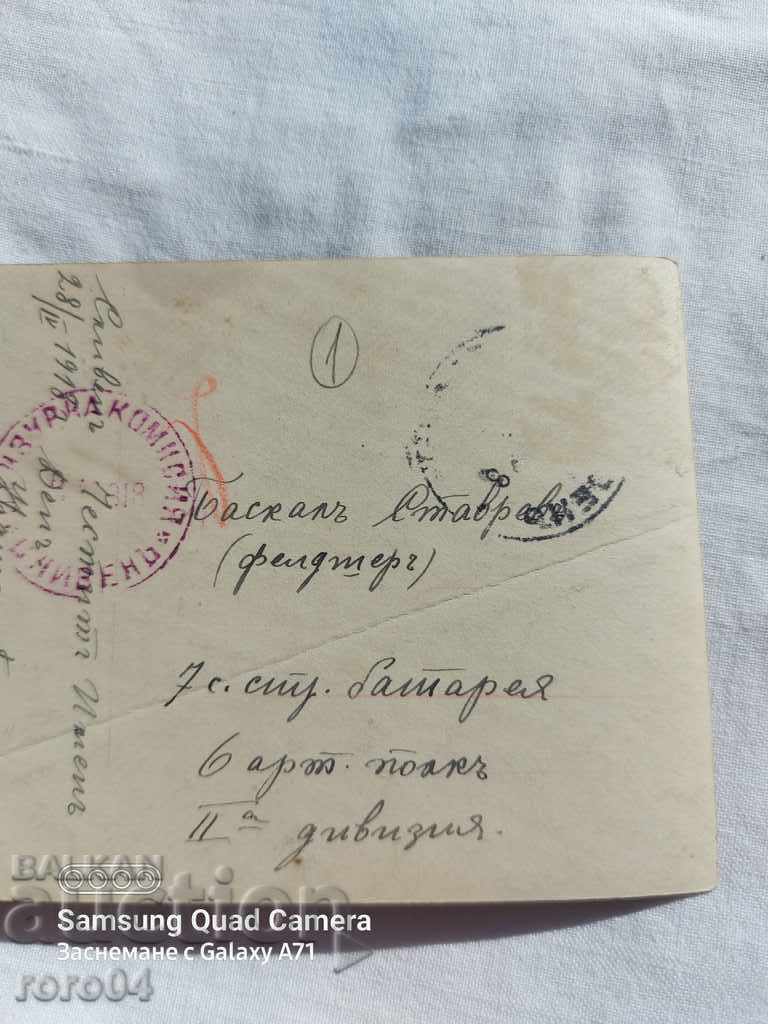 Сливенъ
28/IV 1918 г.
Честитъ Именъ
Денъ
ЦЕНЗУРНА КОМИСИЯ * СЛИВЕНЪ
1918
1
Баскалъ Ставревъ
(фелдшеръ)
7 с. стр. батарея
6 арт. полкъ
II а дивизия.
8
BALKAN
auction
Samsung Quad Camera
Заснемане с Galaxy A71
roro04